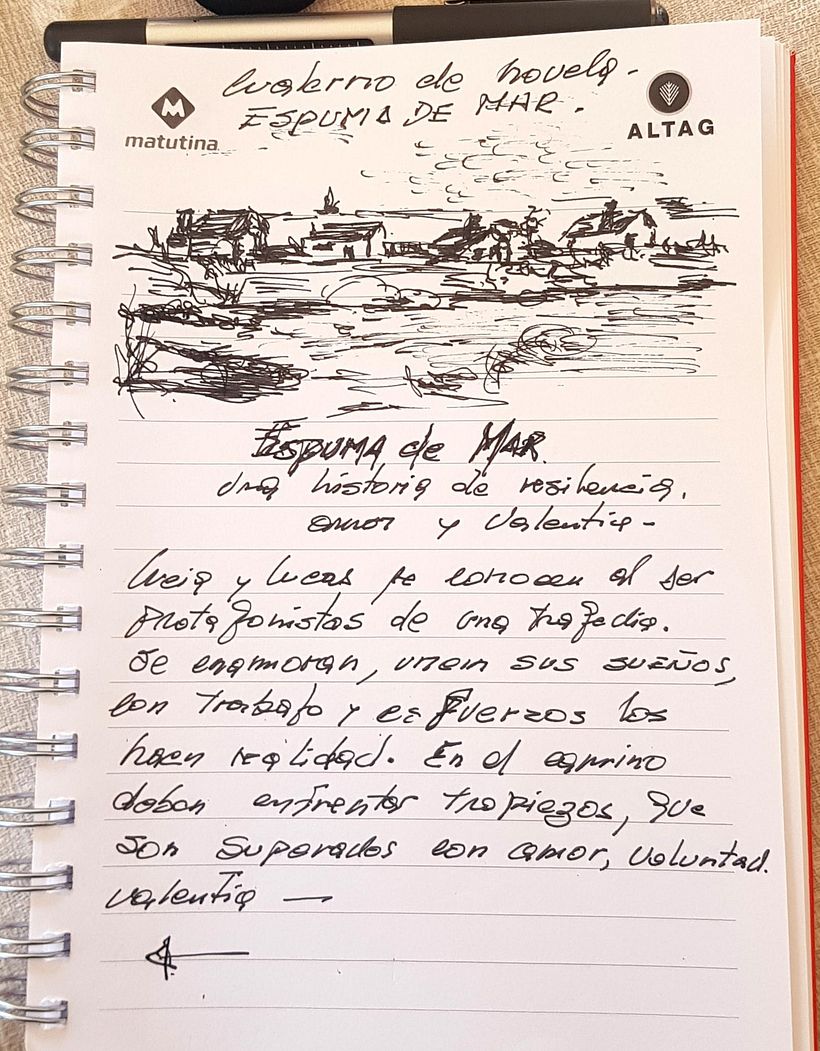 Cuaderno de novela.
ESPUMA DE MAR.
M
matutina
ALTAG
ESPUMA de MAR
Una historia de resiliencia,
amor y valentía.
Lucía y Lucas se conocen al ser
protagonistas de una tragedia.
Se enamoran, unen sus sueños,
con trabajo y esfuerzos los
hacen realidad. En el camino
deben enfrentar tropiezos, que
son superados con amor, voluntad.
valentía —